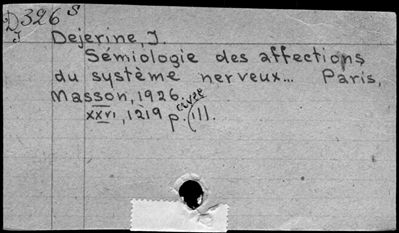 D326s
J
Dejerine, J.
Sémiologie des affections
du système nerveux... Paris,
Masson, 1926.
xxvi, 1219 p. (ill.